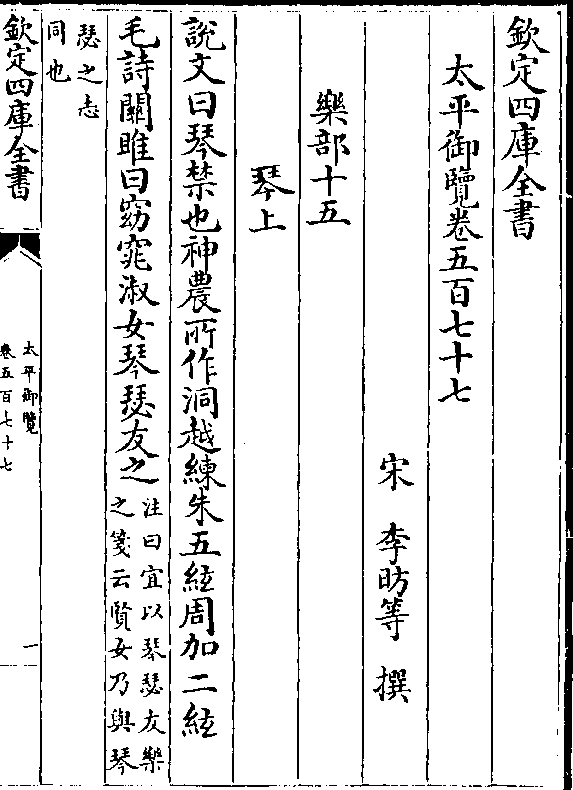 欽定四庫全書
太平御覽卷五百七十七
宋 李昉等 撰
樂部十五
琴上
說文曰琴禁也神農所作洞越練朱五絃周加二絃
毛詩關雎曰窈窕淑女琴瑟友之
注曰宜以琴瑟友樂
之箋云賢女乃與琴
瑟之志
同也
欽定四庫全書
太平御覽
卷五百七十七
一